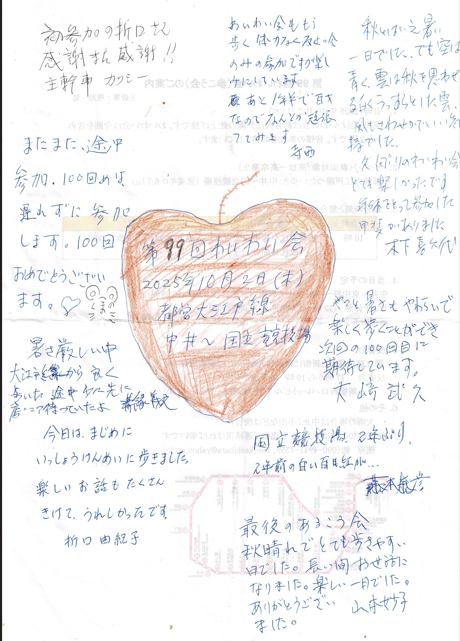 初参加の折口さん
感謝さん感謝!!
主幹事 カツシー
あいわい会もう
歩く体力なく反省会
のみの参加ですが楽し
みにしています
百才
なのでなんとか頑張
ってみます
寺西
秋とはいえ暑い
一日でした、でも空は
青く、雲は秋を思わせる
うすらとした雲、
風もさわやかでいい
でした。
久しぶりのわいわい会
とても楽しかったです
年休をとって参加した
甲斐がありました
木下
またまた、途中
参加、100回めは
遅れずに参加
します。100回
おめでとうござい
ます。
第99回わいわい会
2025年10月2日(木)
都営大江戸線
中井〜国立競技場
やっと暑さもやわらいで
楽しく歩くことができ
次回の100回目に
期待しています。
大崎 武久
暑さ厳しい中
大江戸線 から良く
歩いた 途中
待っていたよ
今日は、まじめに
いっしょうけんめいに歩きました
楽しいお話もたくさん
きけて、うれしかったです
折口 由紀子
国立競技場、2年ぶり、
2年前の白い百日紅が…
藤本
最後のあるこう会
秋晴れでとても歩きやすい
日でした。長い間お世話に
なりました。楽しい一日でした。
ありがとうござい
ました。
山本 妙子